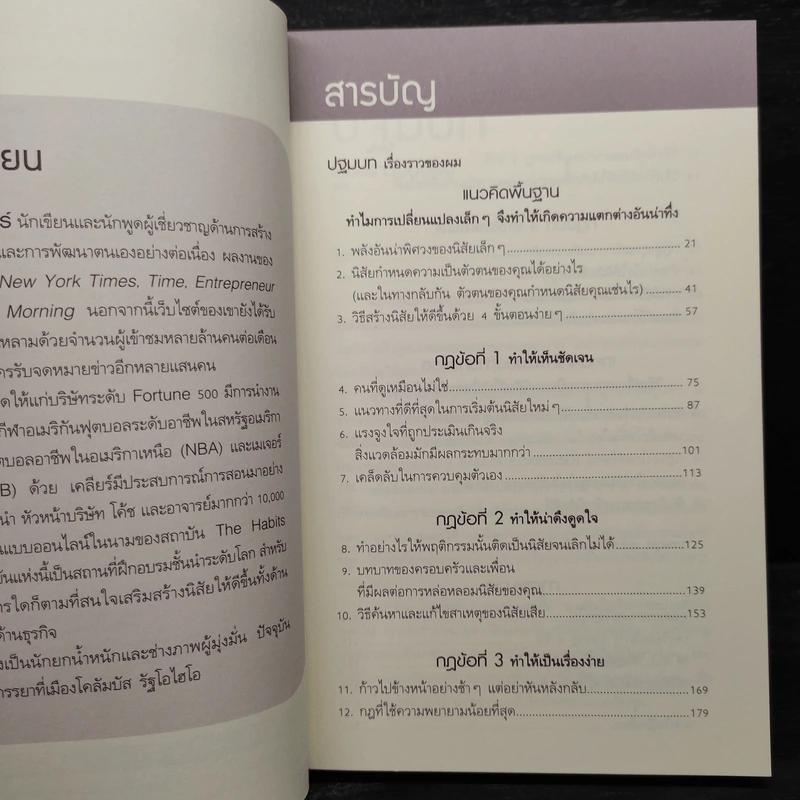 ยน
ร์ นักเขียนและนักพูดผู้เชี่ยวชาญด้านการสร้าง
และการพัฒนาตนเองอย่างต่อเนื่อง ผลงานของ
New York Times, Time, Entrepreneur
Morning นอกจากนี้เว็บไซต์ของเขายังได้รับ
หลามด้วยจำนวนผู้เข้าชมหลายล้านคนต่อเดือน
ครรับจดหมายข่าวอีกหลายแสนคน
ดให้แก่บริษัทระดับ Fortune 500 มีการนำงาน
กีฬาอเมริกันฟุตบอลระดับอาชีพในสหรัฐอเมริกา
ตบอลอาชีพในอเมริกาเหนือ (NBA) และเมเจอร์
B) ด้วย เคลียร์มีประสบการณ์การสอนมาอย่าง
นำ หัวหน้าบริษัท โค้ช และอาจารย์มากกว่า 10,000
นแบบออนไลน์ในนามของสถาบัน The Habits
บันแห่งนี้เป็นสถานที่ฝึกอบรมชั้นนำระดับโลก สำหรับ
ารใดก็ตามที่สนใจเสริมสร้างนิสัยให้ดีขึ้นทั้งด้าน
ด้านธุรกิจ
งเป็นนักยกน้ำหนักและช่างภาพผู้มุ่งมั่น ปัจจุบัน
ภรรยาที่เมืองโคลัมบัส รัฐโอไฮโอ
สารบัญ
ปฐมบท เรื่องราวของผม
แนวคิดพื้นฐาน
ทำไมการเปลี่ยนแปลงเล็ก ๆ จึงทำให้เกิดความแตกต่างอันน่าทึ่ง
1. พลังอันน่าพิศวงของนิสัยเล็ก ๆ 21
2. นิสัยกำหนดความเป็นตัวตนของคุณได้อย่างไร
(และในทางกลับกัน ตัวตนของคุณกำหนดนิสัยคุณเช่นไร) 41
3. วิธีสร้างนิสัยให้ดีขึ้นด้วย 4 ขั้นตอนง่าย ๆ 57
กฎข้อที่ 1 ทำให้เห็นชัดเจน
4. คนที่ดูเหมือนไม่ใช่ 75
5. แนวทางที่ดีที่สุดในการเริ่มต้นนิสัยใหม่ ๆ 87
6. แรงจูงใจที่ถูกประเมินเกินจริง
สิ่งแวดล้อมมักมีผลกระทบมากกว่า 101
7. เคล็ดลับในการควบคุมตัวเอง 113
กฎข้อที่ 2 ทำให้น่าดึงดูดใจ
8. ทำอย่างไรให้พฤติกรรมนั้นติดเป็นนิสัยจนเลิกไม่ได้ 125
9. บทบาทของครอบครัวและเพื่อน
ที่มีผลต่อการหล่อหลอมนิสัยของคุณ 139
10. วิธีค้นหาและแก้ไขสาเหตุของนิสัยเสีย 153
กฎข้อที่ 3 ทำให้เป็นเรื่องง่าย
11. ก้าวไปข้างหน้าอย่างช้า ๆ แต่อย่าหันหลังกลับ 169
12. กฎที่ใช้ความพยายามน้อยที่สุด 179